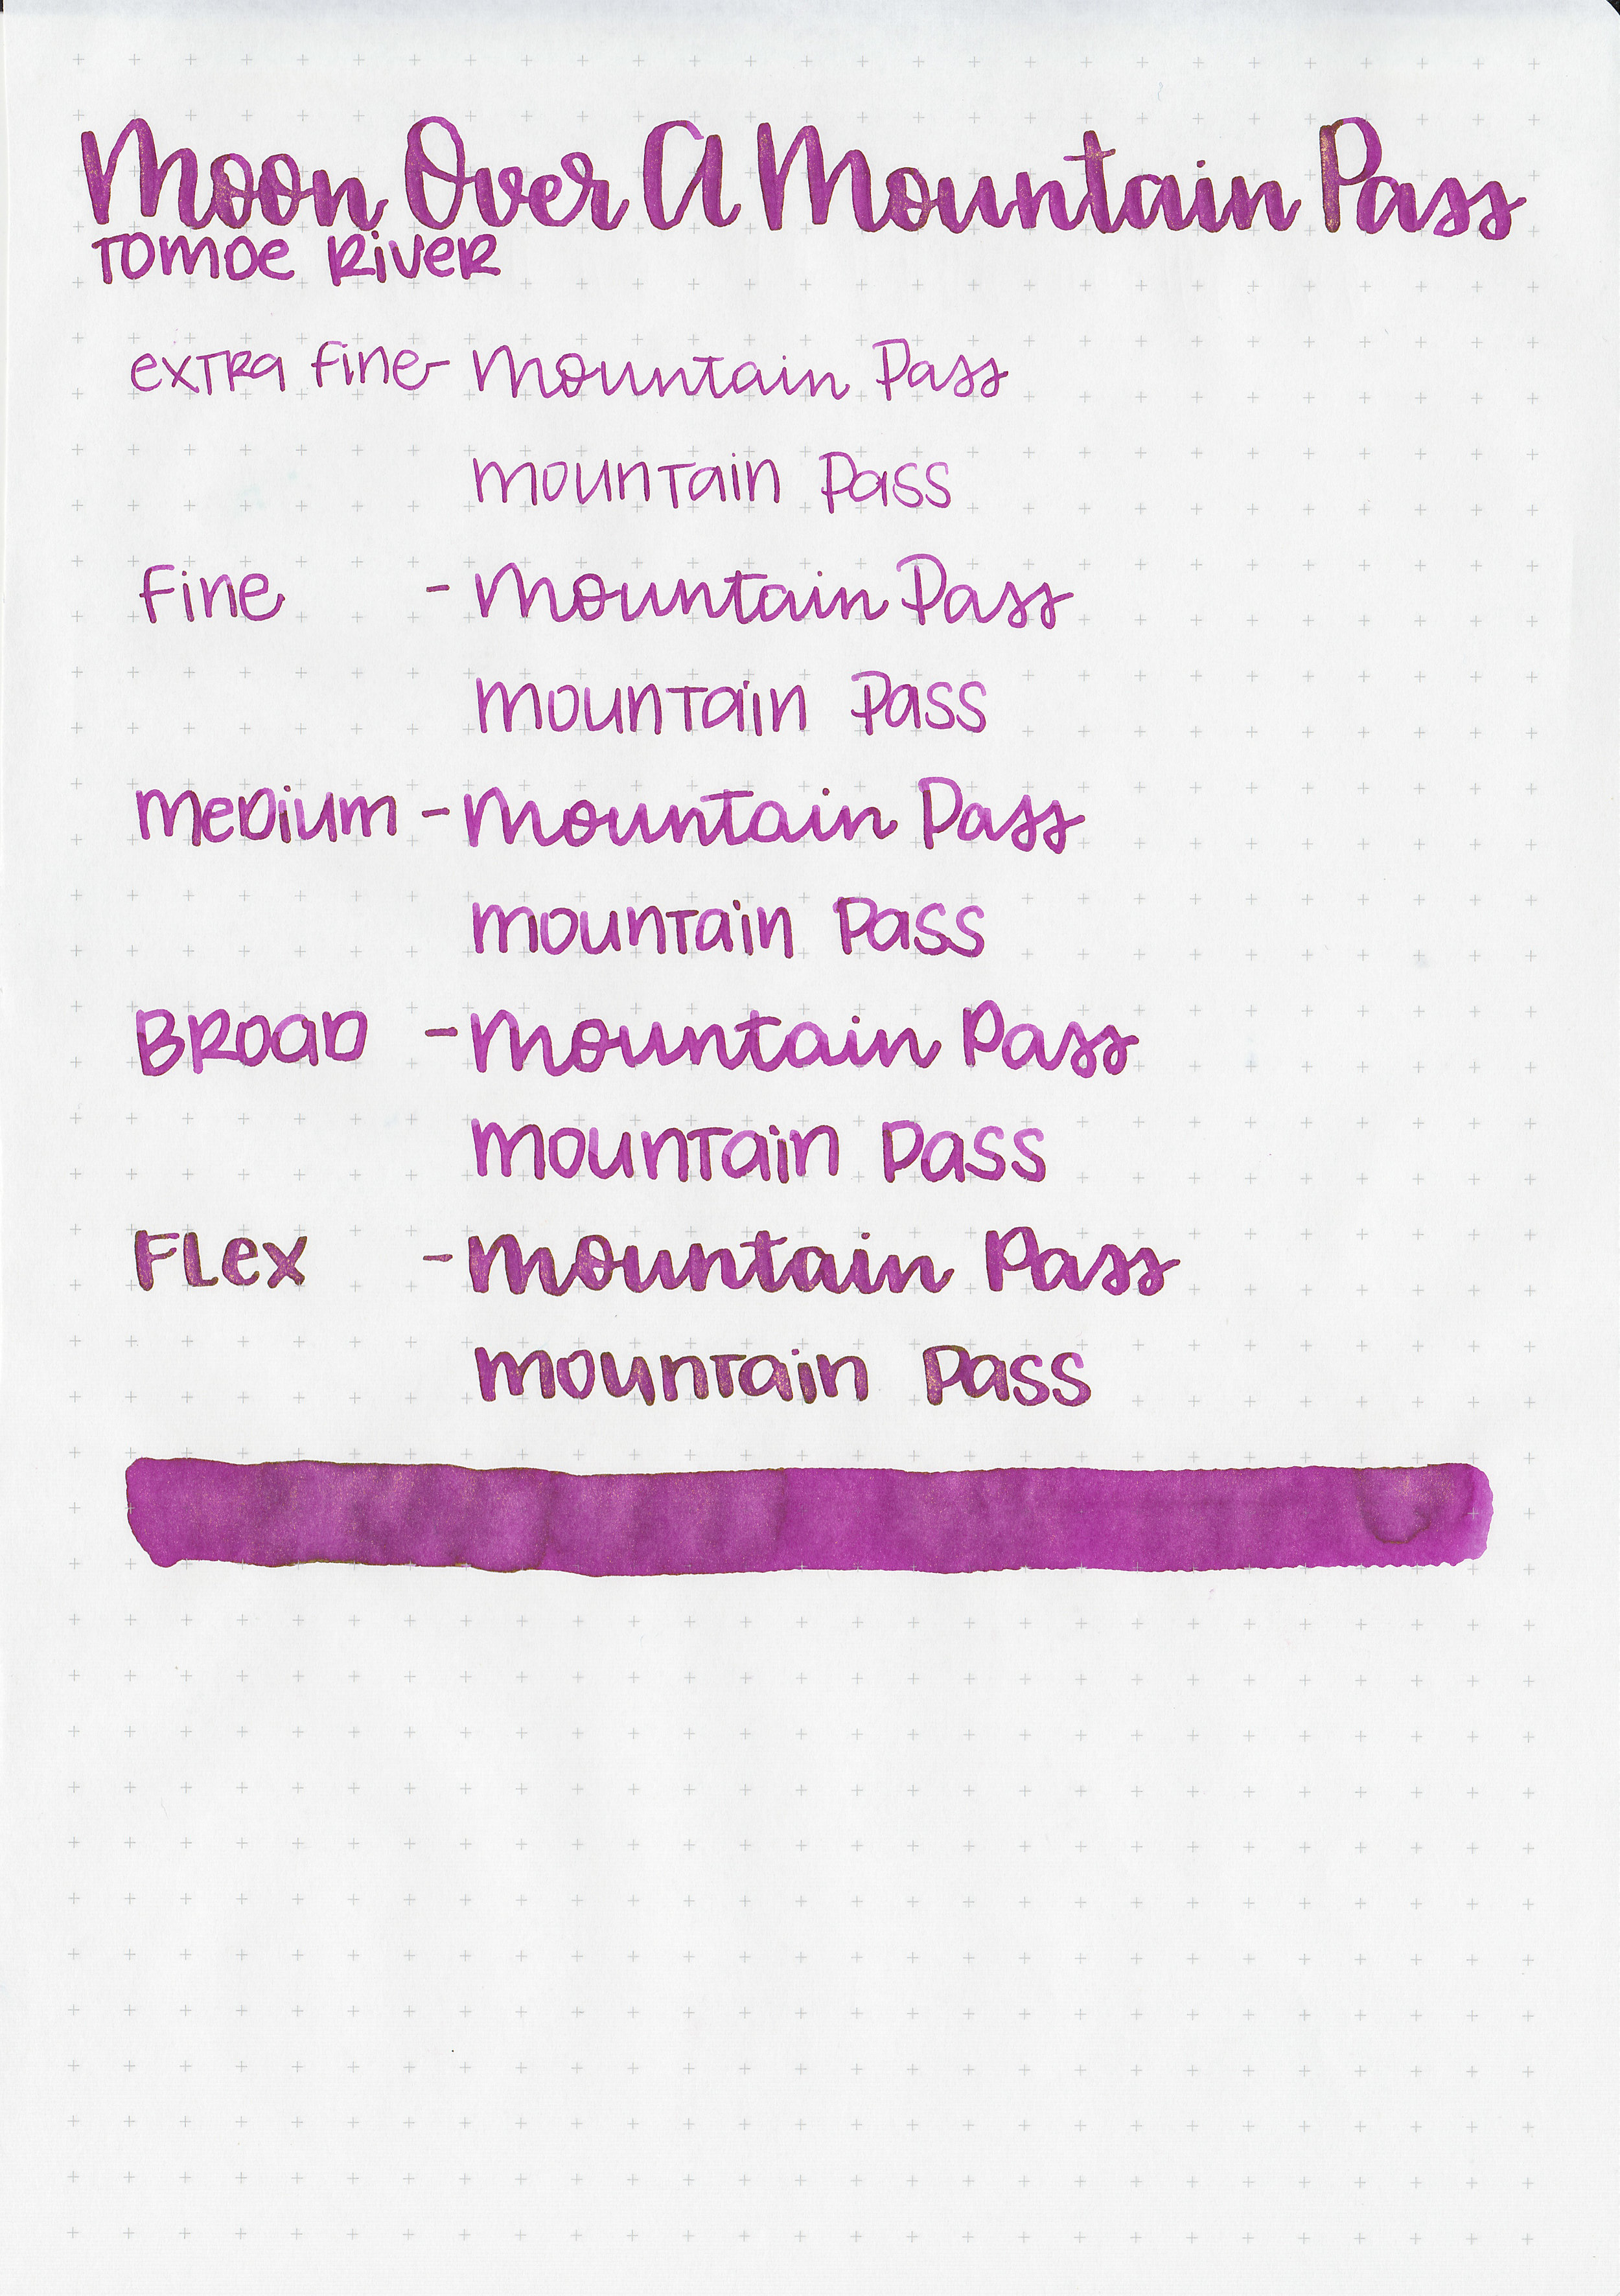 Moon Over A Mountain Pass
Tomoe River
extra fine - Mountain Pass
mountain Pass
Fine - Mountain Pass
mountain Pass
Medium - Mountain Pass
mountain Pass
Broad - Mountain Pass
mountain Pass
Flex - Mountain Pass
mountain Pass